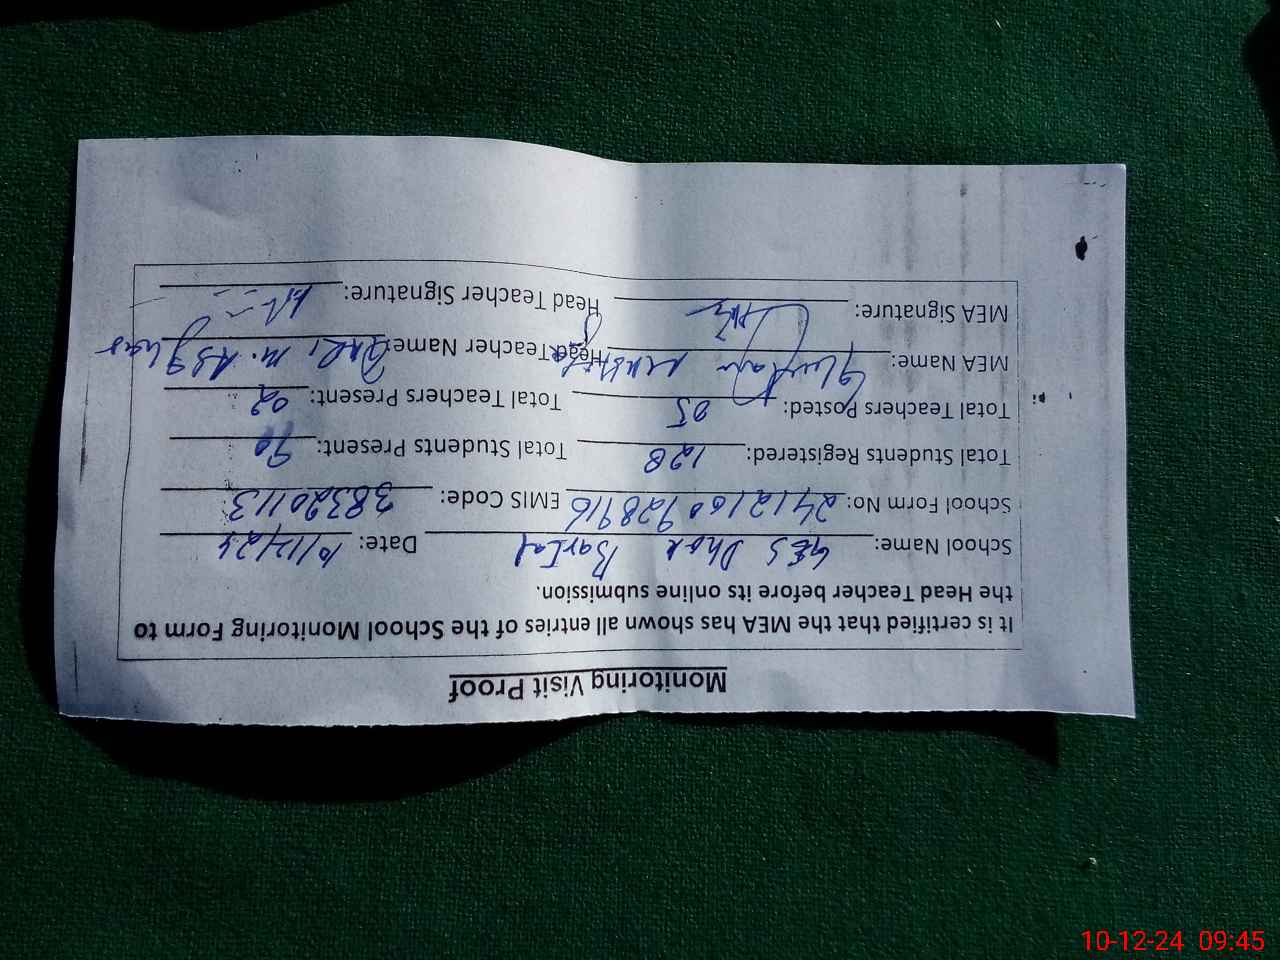 Monitoring Visit Proof
It is certified that the MEA has shown all entries of the School Monitoring Form to
the Head Teacher before its online submission.
School Name: GES Dhok Date: 10/12/24
School Form No: 2412100928916 EMIS Code: 38320113
Total Students Registered: 128 Total Students Present: 90
Total Teachers Posted: 05 Total Teachers Present: 02
MEA Name: Head Teacher Name:
MEA Signature: Head Teacher Signature:
10-12-24 09:45